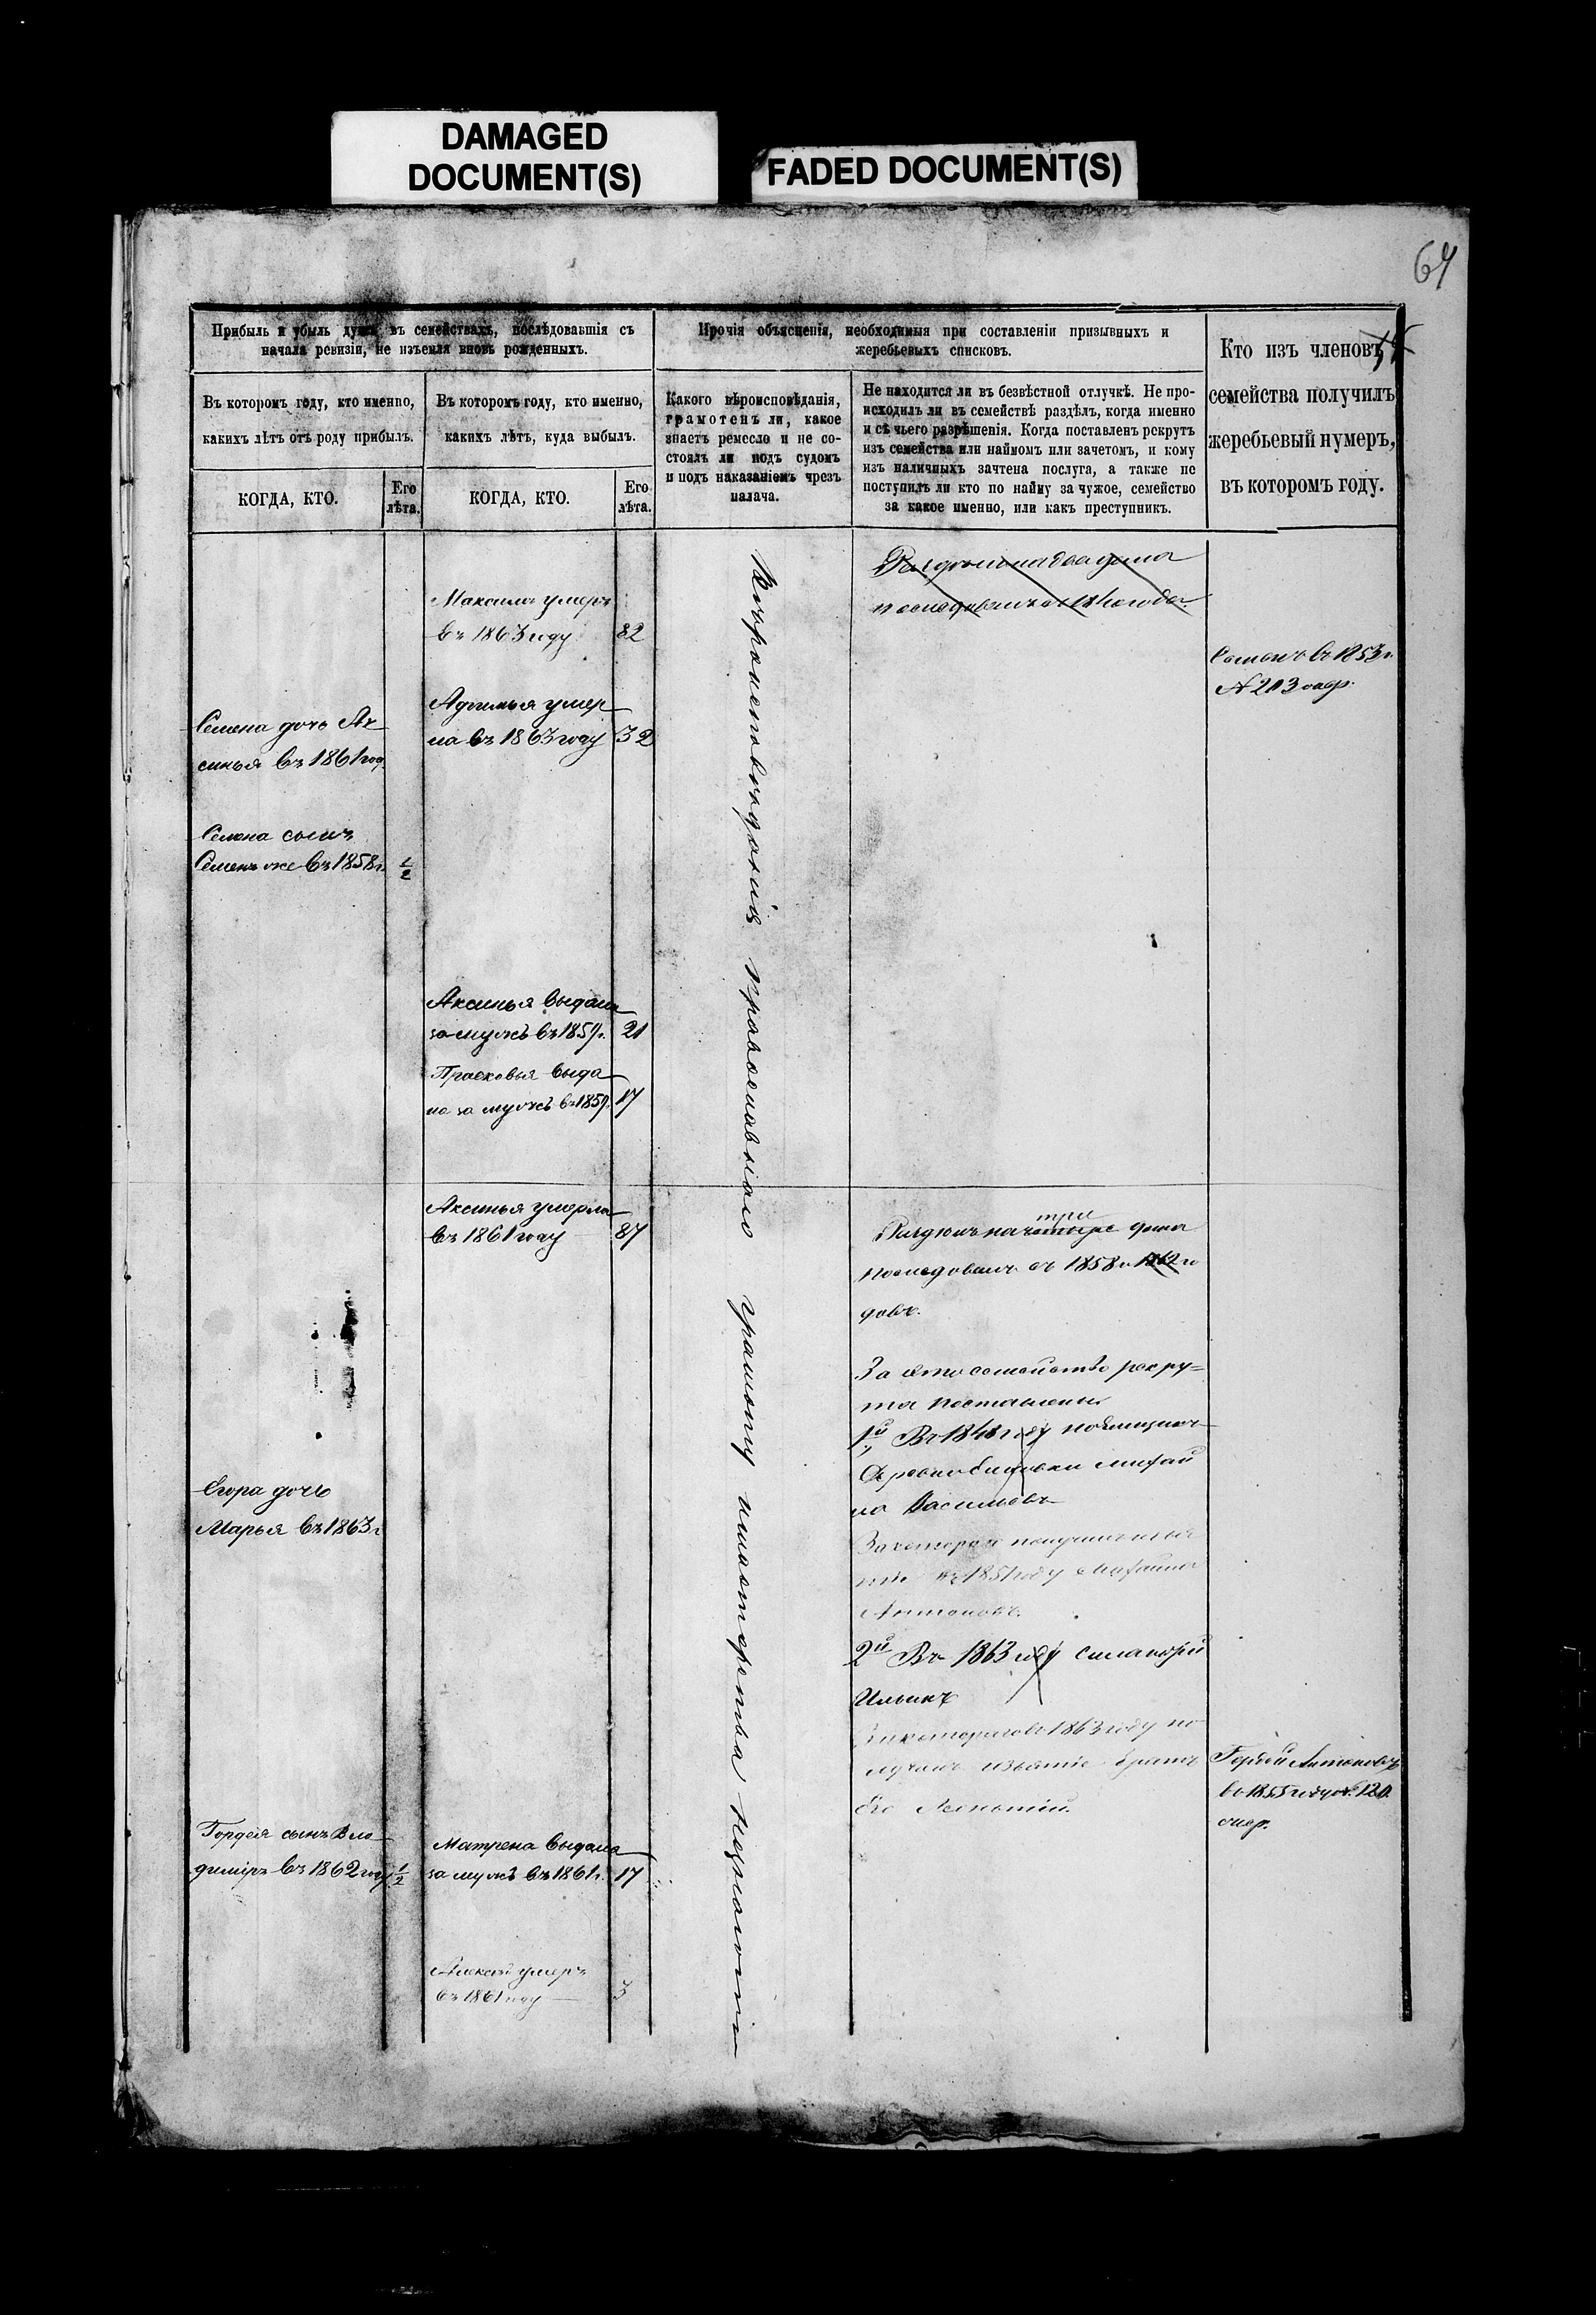 DAMAGED
DOCUMENT(S)
FADED DOCUMENT(S)
64
Прибыль и убыль душъ въ семействахъ, послѣдовавшія съ
начала ревизіи, не изъемля вновь рожденныхъ.
Прочія объясненія, необходимыя при составленіи призывныхъ и
жеребьевыхъ списковъ.
Кто изъ членовъ
семейства получилъ
жеребьевый нумеръ,
въ которомъ году.
Въ которомъ году, кто именно,
какихъ лѣтъ отъ роду прибылъ.
Въ которомъ году, кто именно,
какихъ лѣтъ, куда выбылъ.
Какого вѣроисповѣданія,
грамотенъ ли, какое
знаетъ ремесло и не со-
стоялъ ли подъ судомъ
и подъ наказаніемъ чрезъ
палача.
Не находится ли въ безвѣстной отлучкѣ. Не про-
исходилъ ли въ семействѣ раздѣлъ, когда именно
и съ чьего разрѣшенія. Когда поставленъ рекрутъ
изъ семейства или наймомъ или зачетомъ, и кому
изъ наличныхъ зачтена послуга, а также не
поступилъ ли кто по найму за чужое, семейство
за какое именно, или какъ преступникъ.
КОГДА, КТО.
Его
лѣта.
КОГДА, КТО.
Его
лѣта.
Максимъ умеръ
въ 1863 году 82
Семенъ въ 1853 г.
№ 213
умер
ла въ 1863 году 32
Семена дочь Ак
синья въ 1861 год.
Семена сынъ
Семенъ же въ 1858 г. 1/2
Аксинья выдана
за мужъ въ 1859 г. 21
Прасковья выда
на за мужъ въ 1859 г. 17
Вѣроисповѣданія православнаго грамоту и мастерства не знаютъ
Аксинья умерла
въ 1861 году 87
Раздѣлъ на четыре три дома
послѣдовалъ съ 1858 и 1862 го
довъ.
За это семейство рекру=
та поставлены
1й, Въ 184 году
Михай
ла Васильевъ
За которого
въ 1851 году Михайла
Антоновъ.
2й Въ 1863 году
Ильинъ
1863 году по
лучилъ изъятіе братъ
его
Егора дочь
Марья въ 1863 г
Гордей Антоновъ
въ 1855 году № 120.
Гордея сынъ Вла
диміръ въ 1862 году 1/2
Матрена выдана
за мужъ въ 1861 г. 17
Алексѣй умеръ
въ 1861 году 3